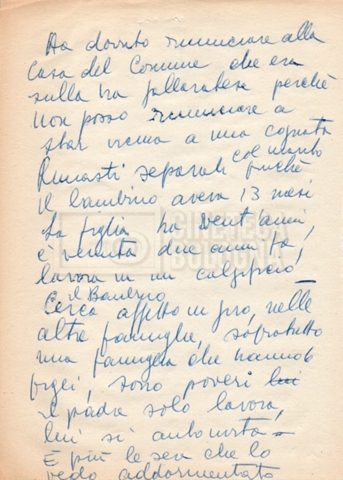 Ha dovuto rinunciare alla
Casa del Comune che era
sulla via gallaratese perché
Non posso rinunciare a
star vicina a mia cognata
Rimasti separati col marito
finché
il bambino aveva 13 mesi
La figlia ha vent'anni,
è venuta due anni fa,
lavora in un calzificio,
il Bambino
Cerca affetto in giro, nelle
altre famiglie, soprattutto
una famiglia che hanno 6
figli, sono poveri lui
il padre solo lavora,
lui si
E più le sere che lo
vedo addormentato
CINETECA
BOLOGNA